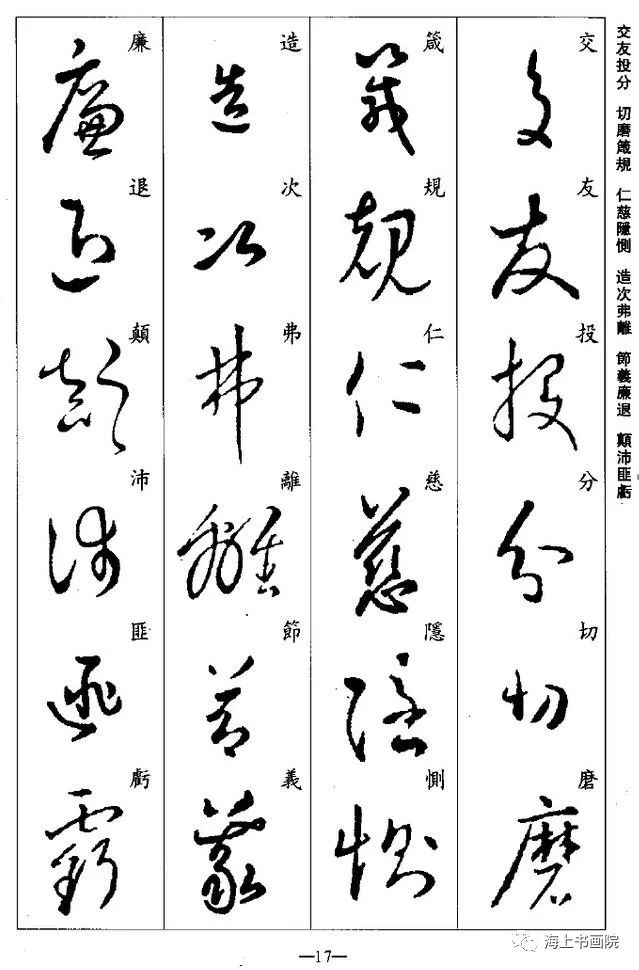 交友投分 切磨箴規 仁慈隱惻 造次弗離 節義廉退 顛沛匪虧
交友投分切磨
箴規仁慈隱惻
造次弗離節義
廉退顛沛匪虧
—17—
海上书画院